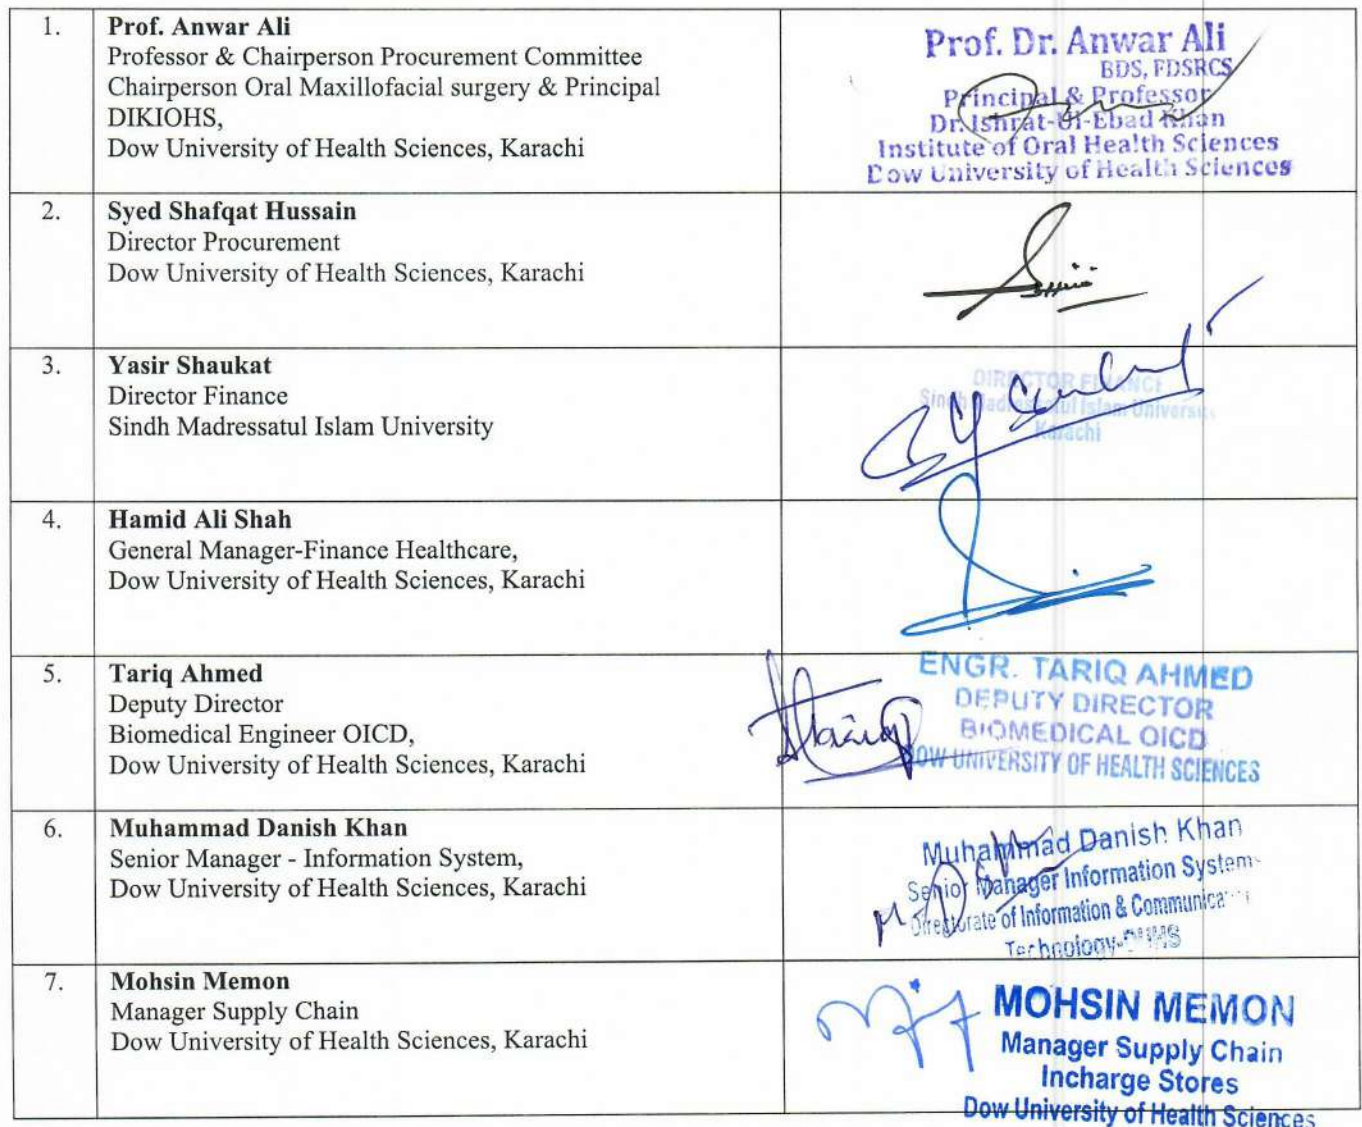 1.
Prof. Anwar Ali
Professor & Chairperson Procurement Committee
Chairperson Oral Maxillofacial surgery & Principal
DIKIOHS,
Dow University of Health Sciences, Karachi
Prof. Dr. Anwar Ali
BDS, FDSRCS
Principal & Professor
Dr. Ishrat-Ul-Ebad Khan
Institute of Oral Health Sciences
Dow University of Health Sciences
2.
Syed Shafqat Hussain
Director Procurement
Dow University of Health Sciences, Karachi
3.
Yasir Shaukat
Director Finance
Sindh Madressatul Islam University
DIRECTOR FINANCE
Sindh Madressatul Islam University
Karachi
4.
Hamid Ali Shah
General Manager-Finance Healthcare,
Dow University of Health Sciences, Karachi
5.
Tariq Ahmed
Deputy Director
Biomedical Engineer OICD,
Dow University of Health Sciences, Karachi
ENGR. TARIQ AHMED
DEPUTY DIRECTOR
BIOMEDICAL OICD
DOW UNIVERSITY OF HEALTH SCIENCES
6.
Muhammad Danish Khan
Senior Manager - Information System,
Dow University of Health Sciences, Karachi
Muhammad Danish Khan
Senior Manager Information System
Directorate of Information &
Technology
7.
Mohsin Memon
Manager Supply Chain
Dow University of Health Sciences, Karachi
MOHSIN MEMON
Manager Supply Chain
Incharge Stores
Dow University of Health Sciences